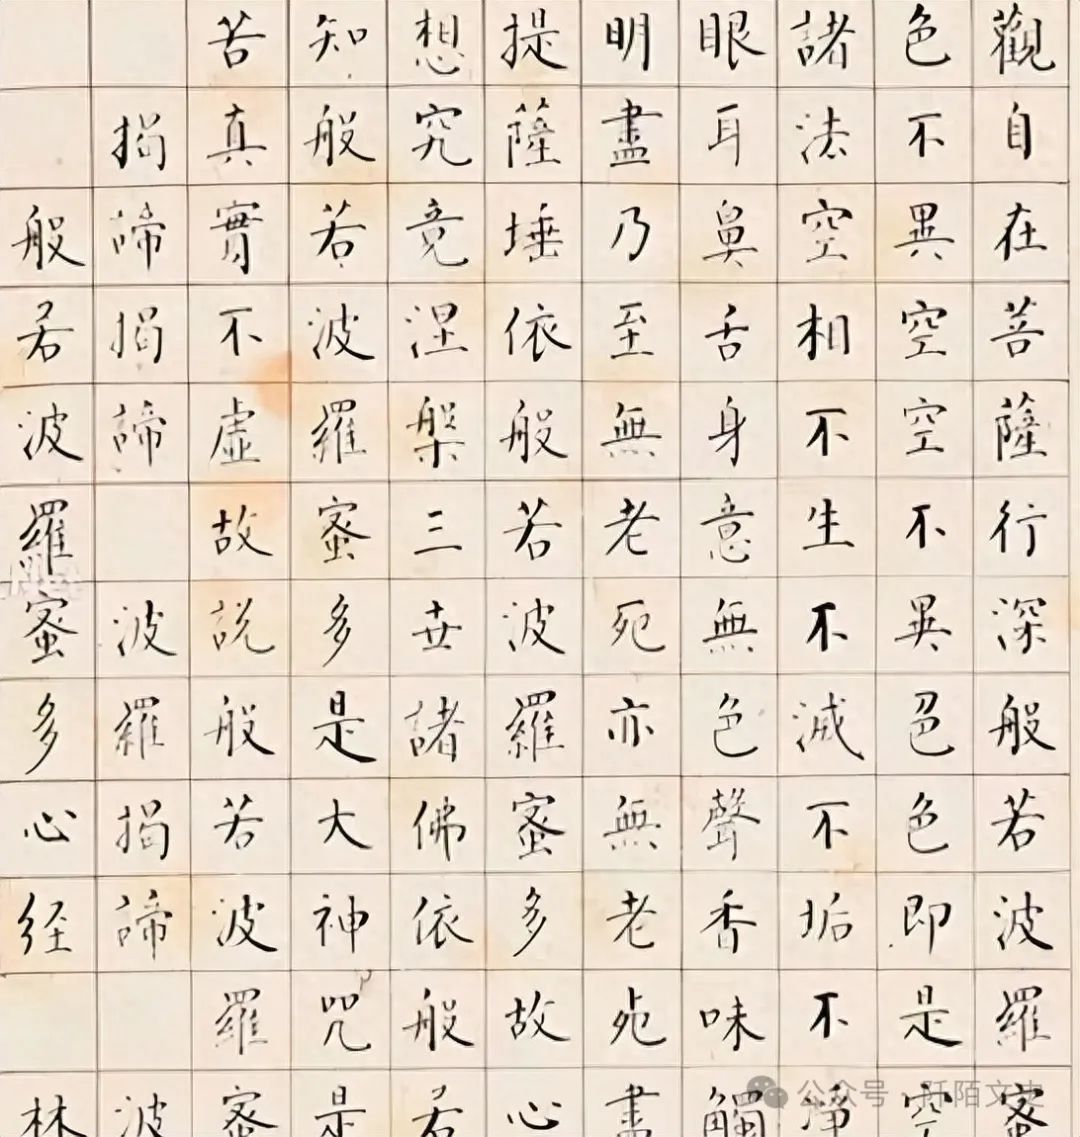 觀自在菩薩行深般若波羅蜜
色不異空空不異色色即是空
諸法空相不生不滅不垢不淨
眼耳鼻舌身意無色聲香味觸
明盡乃至無老死亦無老死盡
提薩埵依般若波羅蜜多故心
想究竟涅槃三世諸佛依般若
知般若波羅蜜多是大神咒是
苦真實不虛故說般若波羅蜜
揭諦揭諦 波羅揭諦 波
般若波羅蜜多心経 林
公众号·阡陌文史